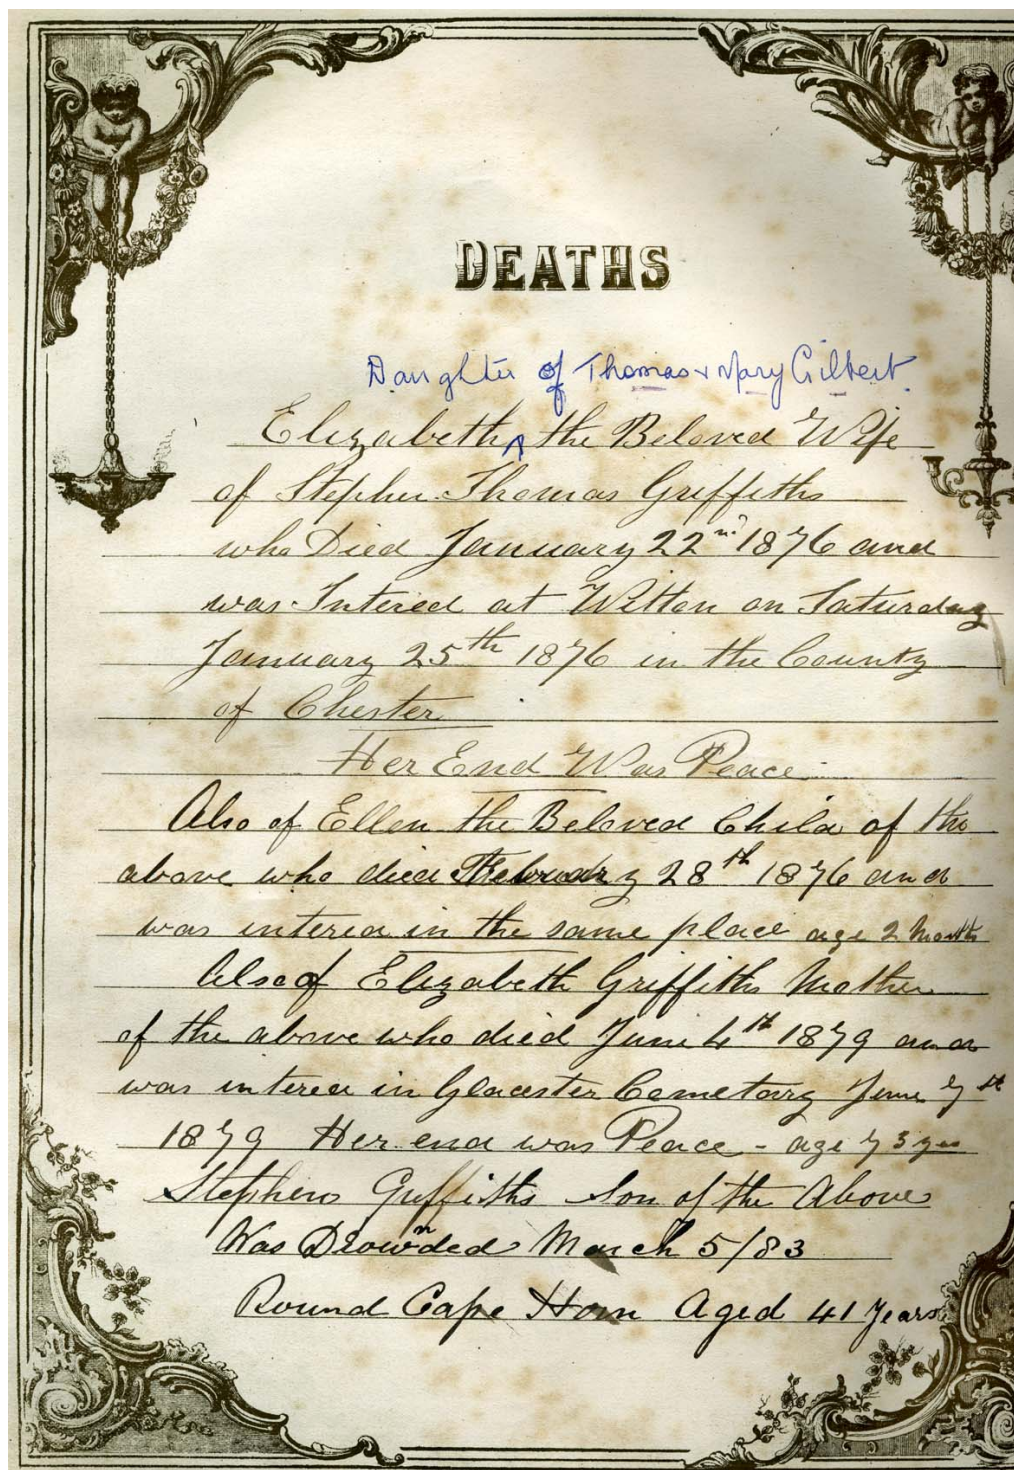 DEATHS
Daughter of Thomas & Mary Gilbert.
Elizabeth ^ the Beloved Wife
of Stephen Thomas Griffiths
who Died January 22nd 1876 and
was Intered at Witton on Saturday
January 25th 1876 in the County
of Chester
Her End Was Peace
Also of Ellen the Beloved Child of the
above who died February 28th 1876 and
was intered in the same place age 2 Month
Also of Elizabeth Griffiths Mother
of the above who died June 4th 1879 and
was intered in Glocester Cemetary June 7th
1879 Her end was Peace - age 73 yrs
Stephens Griffiths Son of the Above
Was Drownded March 5/83
Round Cape Horn Aged 41 Years